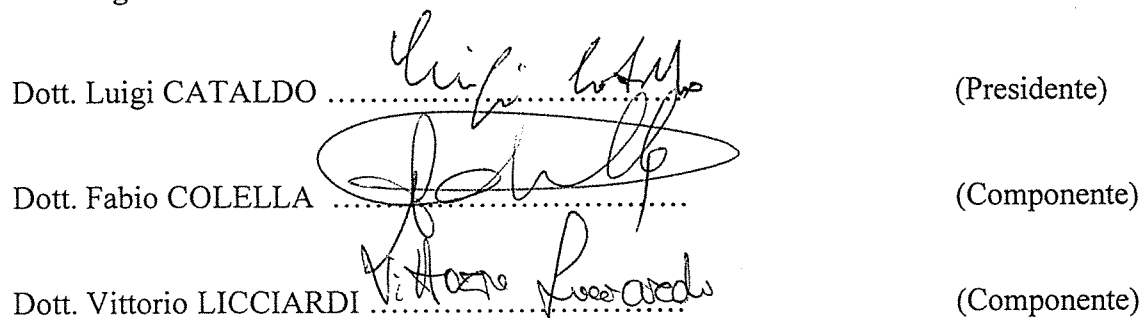 Dott. Luigi CATALDO Luigi Cataldo (Presidente)
Dott. Fabio COLELLA (Componente)
Dott. Vittorio LICCIARDI Vittorio (Componente)